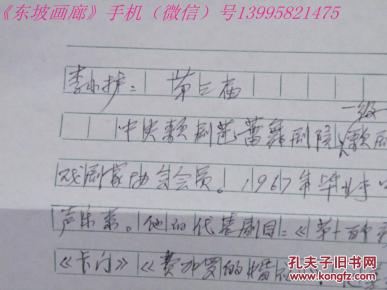 《东坡画廊》手机（微信）号13995821475
李小护：第三届
一级
中央歌剧芭蕾舞剧院歌剧
戏剧家协会会员！1967年毕业于
声乐系。他的代表剧目：《第十二夜
《卡门》《费加罗的婚
孔夫子旧书网